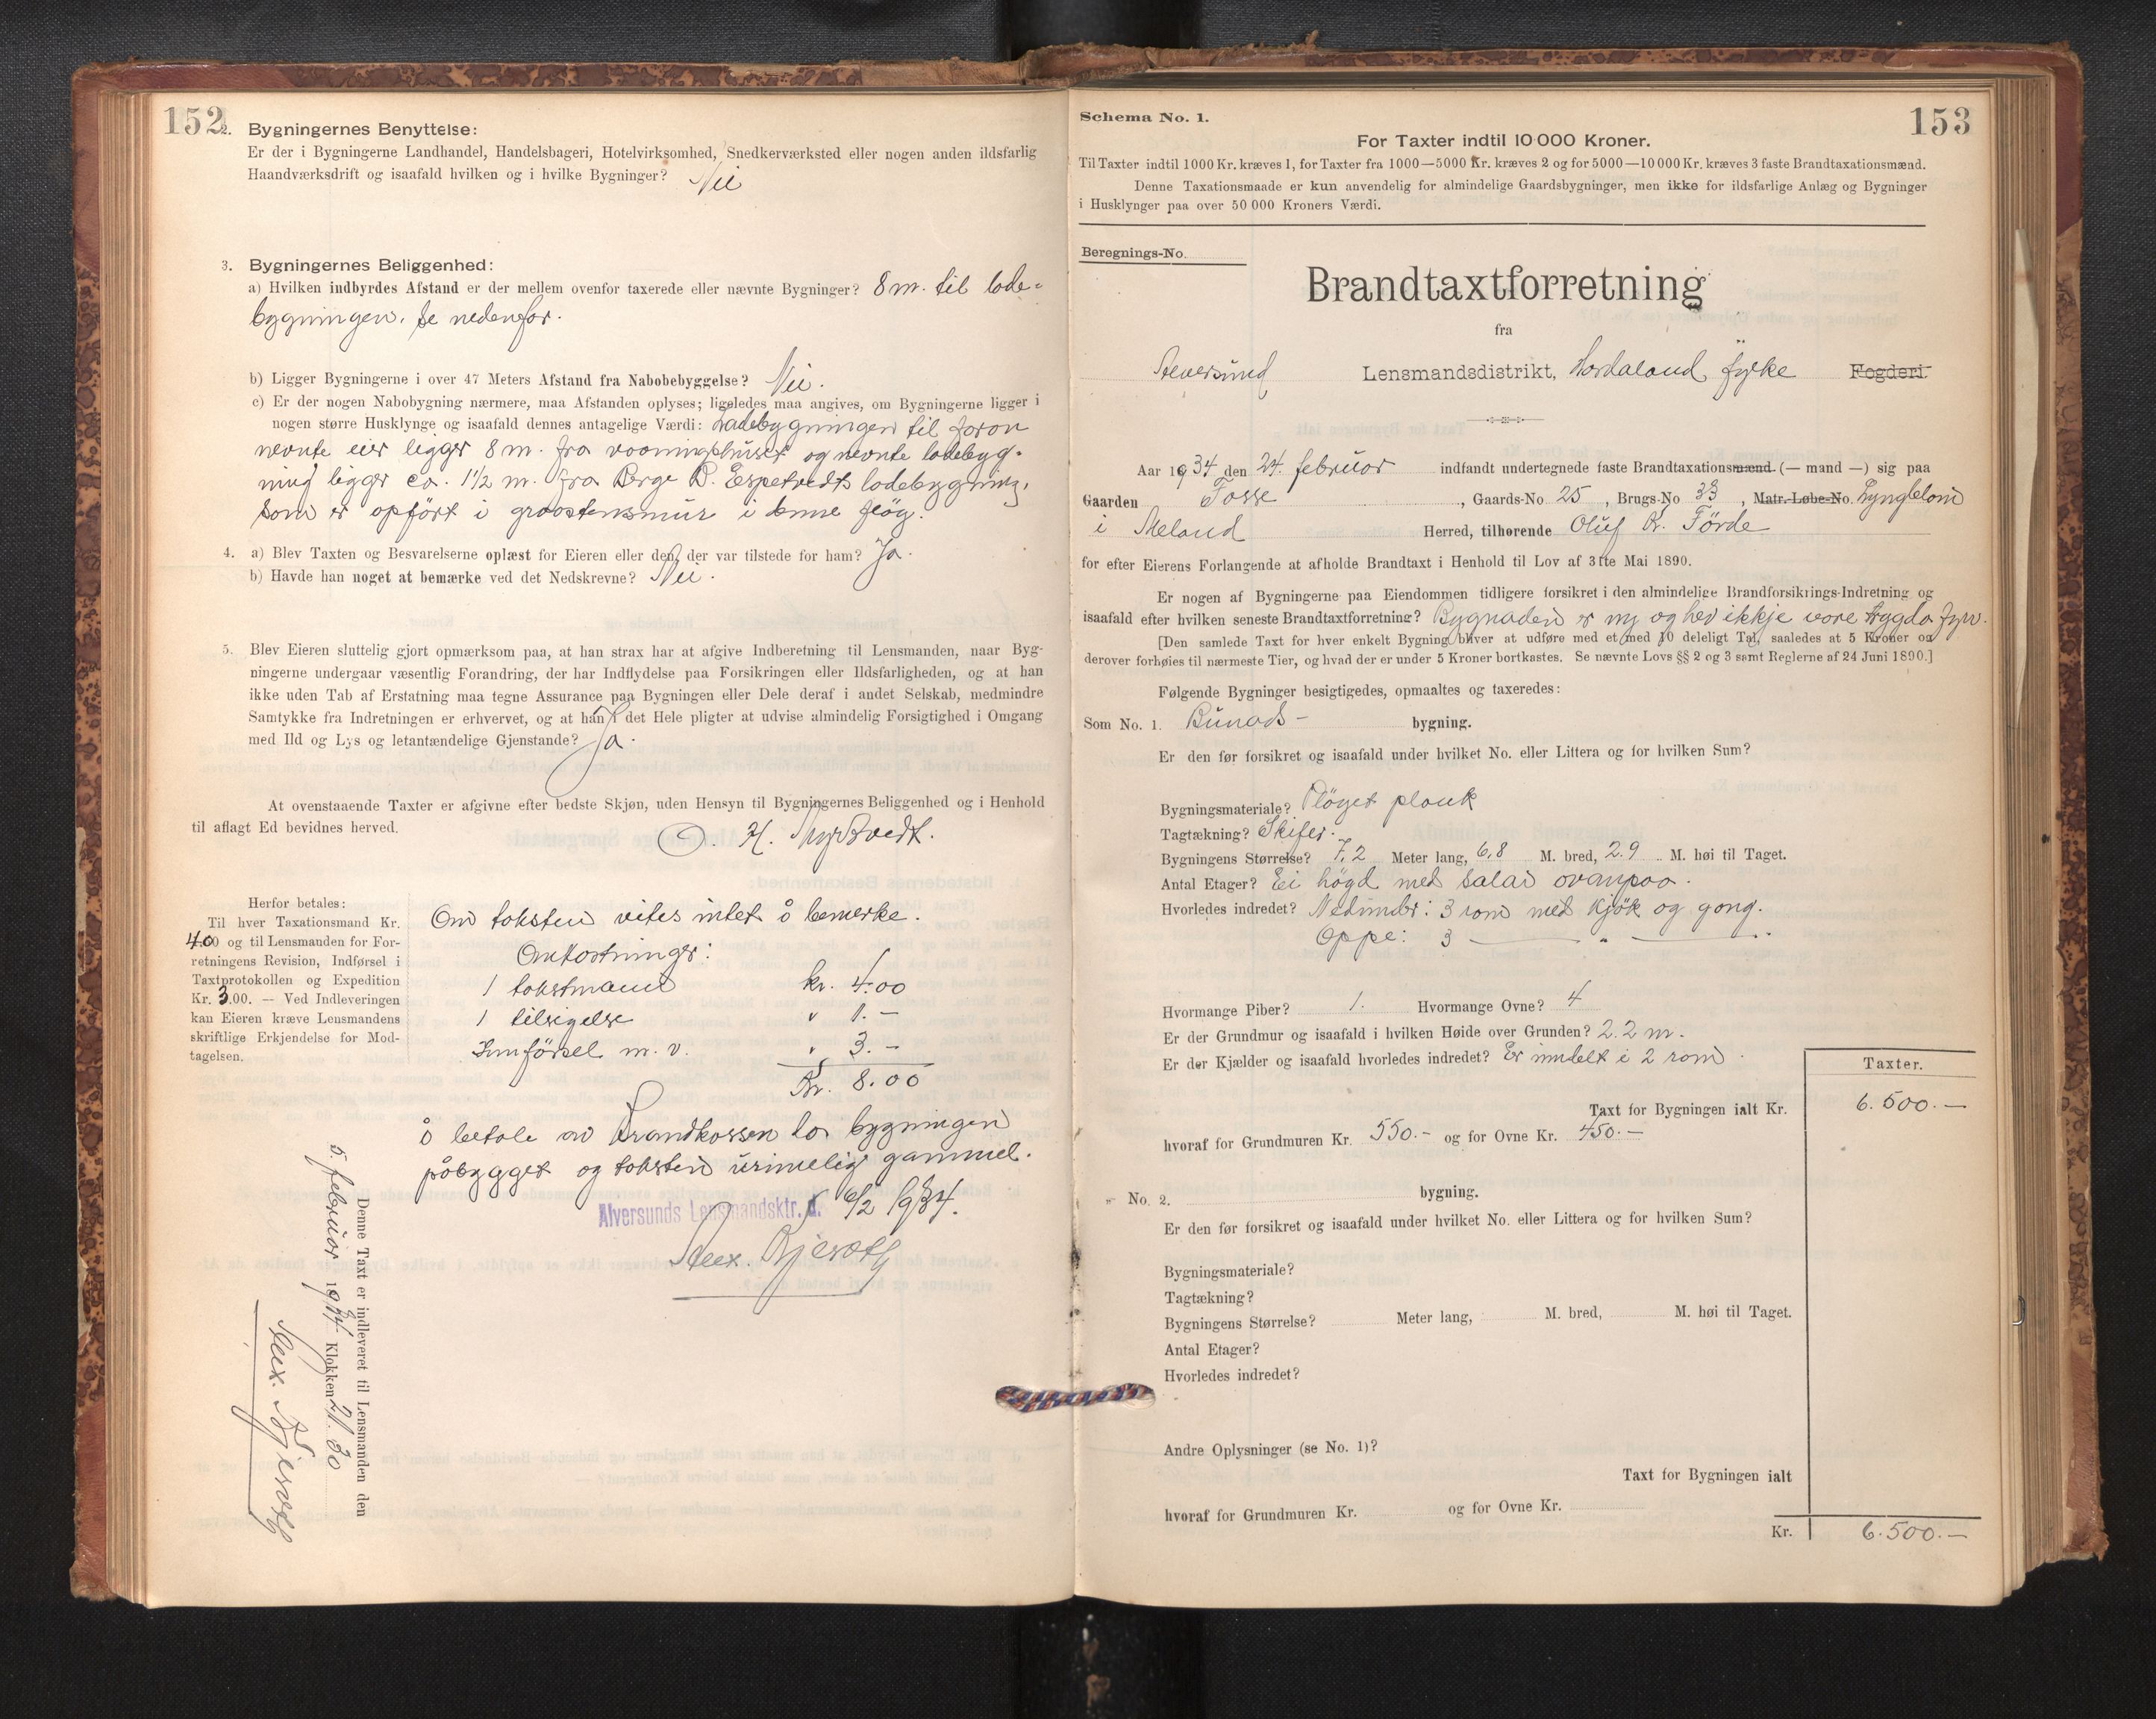 152
2. Bygningernes Benyttelse:
Er der i Bygningerne Landhandel, Handelsbageri, Hotelvirksomhed, Snedkerværksted eller nogen anden ildsfarlig
Haandværksdrift og isaafald hvilken og i hvilke Bygninger? Nei
3. Bygningernes Beliggenhed:
a) Hvilken indbyrdes Afstand er der mellem ovenfor taxerede eller nævnte Bygninger? 8 m. til løde-
bygningen. Se nedenfor.
b) Ligger Bygningerne i over 47 Meters Afstand fra Nabobebyggelse? Nei.
c) Er der nogen Nabobygning nærmere, maa Afstanden oplyses; ligeledes maa angives, om Bygningerne ligger i
nogen større Husklynge og isaafald dennes antagelige Værdi: Lødebygningen til foran
nevnte eier ligger 8 m. fra vooningshuset og nevnte lødebyg-
ning ligger ca. 1 1/2 m. fra Berge B. Espetvedts lødebygning,
som er opført i graastensmur i denne fløy.
4. a) Blev Taxten og Besvarelserne oplæst for Eieren eller den, der var tilstede for ham? Ja.
b) Havde han noget at bemærke ved det Nedskrevne? Nei.
5. Blev Eieren sluttelig gjort opmærksom paa, at han strax har at afgive Indberetning til Lensmanden, naar Byg-
ningerne undergaar væsentlig Forandring, der har Indflydelse paa Forsikringen eller Ildsfarligheden, og at han
ikke uden Tab af Erstatning maa tegne Assurance paa Bygningen eller Dele deraf i andet Selskab, medmindre
Samtykke fra Indretningen er erhvervet, og at han i det Hele pligter at udvise almindelig Forsigtighed i Omgang
med Ild og Lys og letantændelige Gjenstande? Ja.
At ovenstaaende Taxter er afgivne efter bedste Skjøn, uden Hensyn til Bygningernes Beliggenhed og i Henhold
til aflagt Ed bevidnes herved. O. H. Myrtvedt.
Herfor betales:
Til hver Taxationsmand Kr.
4.00 og til Lensmanden for For-
retningens Revision, Indførsel i
Taxtprotokollen og Expedition
Kr. 3.00. — Ved Indleveringen
kan Eieren kræve Lensmandens
skriftlige Erkjendelse for Mod-
tagelsen.
Om taksten vites intet å bemerke.
Omkostninger:
1 takstmann kr. 4.00
1 tilsigelse " 1.-
Innførsel m. v. " 3.-
Kr. 8.00
å betale av Brandkassen da bygningen
påbygget og taksten urimelig gammel.
Alversunds Lensmandsktr. d. 6/2 1934.
Denne Taxt er indleveret til Lensmanden den
5. februar 1934 Klokken 21.30
153
Schema No. 1.
For Taxter indtil 10 000 Kroner.
Til Taxter indtil 1000 Kr. kræves 1, for Taxter fra 1000—5000 Kr. kræves 2 og for 5000—10 000 Kr. kræves 3 faste Brandtaxationsmænd.
Denne Taxationsmaade er kun anvendelig for almindelige Gaardsbygninger, men ikke for ildsfarlige Anlæg og Bygninger
i Husklynger paa over 50 000 Kroners Værdi.
Beregnings-No.
Brandtaxtforretning
fra
Alversund Lensmandsdistrikt, Hordaland fylke Fogderi
Aar 1934 den 24. februar indfandt undertegnede faste Brandtaxationsmænd (— mand —) sig paa
Gaarden Fosse, Gaards-No 25, Brugs-No 33, Matr.-Løbe-No. Lyngblom
i Meland Herred, tilhørende Oluf Kr. Førde
for efter Eierens Forlangende at afholde Brandtaxt i Henhold til Lov af 31te Mai 1890.
Er nogen af Bygningerne paa Eiendommen tidligere forsikret i den almindelige Brandforsikrings-Indretning og
isaafald efter hvilken seneste Brandtaxtforretning? Bygnaden er ny og hev ikkje vore trygda fyrr.
[Den samlede Taxt for hver enkelt Bygning bliver at udføre med et med 10 deleligt Tal, saaledes at 5 Kroner og
derover forhøies til nærmeste Tier, og hvad der er under 5 Kroner bortkastes. Se nævnte Lovs §§ 2 og 3 samt Reglerne af 24 Juni 1890.]
Følgende Bygninger besigtigedes, opmaaltes og taxeredes:
Som No. 1. Bunads- bygning.
Er den før forsikret og isaafald under hvilket No. eller Littera og for hvilken Sum?
Bygningsmateriale? Pløget plank
Tagtækning? Skifer.
Bygningens Størrelse? 7,2 Meter lang, 6,8 M. bred, 2.9 M. høi til Taget.
Antal Etager? Ei høgd med salai ovanpaa.
Hvorledes indreret? Nedunder: 3 rom med kjøk og gong.
Oppe: 3 — " —
Hvormange Piber? 1. Hvormange Ovne? 4
Er der Grundmur og isaafald i hvilken Høide over Grunden? 2.2 m.
Er der Kjælder og isaafald hvorledes indredet? Er inndelt i 2 rom.
Taxter.
Taxt for Bygningen ialt Kr. 6.500.—
hvoraf for Grundmuren Kr. 550.- og for Ovne Kr. 450.—
" No. 2. bygning.
Er den før forsikret og isaafald under hvilket No. eller Littera og for hvilken Sum?
Bygningsmateriale?
Tagtækning?
Bygningens Størrelse? Meter lang, M. bred, M. høi til Taget.
Antal Etager?
Hvorledes indredet?
Andre Oplysninger (se No. 1)?
Taxt for Bygningen ialt
hvoraf for Grundmuren Kr. og for Ovne Kr.
Kr. 6.500.—